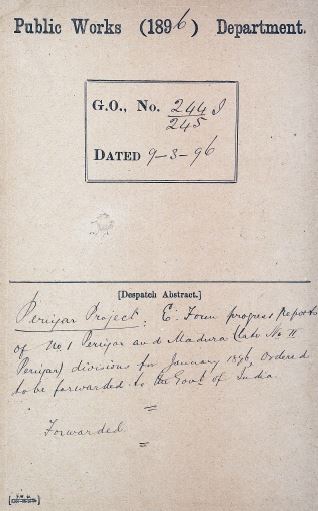 Public Works (1896) Department.
G.O., No. 244 I
245
DATED 9-3-96
[Despatch Abstract.]
Periyar Project: E. Form progress reports
of No 1 Periyar and Madura (late No II
Periyar) divisions for January 1896, Ordered
to be forwarded to the Govt of India.
Forwarded